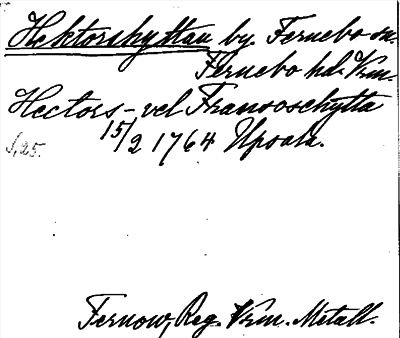 Hektorshyttan by. Fernebo sn.
Fernebo hd. Vrm.
Hectors- vel Fransoschytta
15/2 1764 Upsala.
s. 25.
Fernow, Reg. Vrm. Metall.